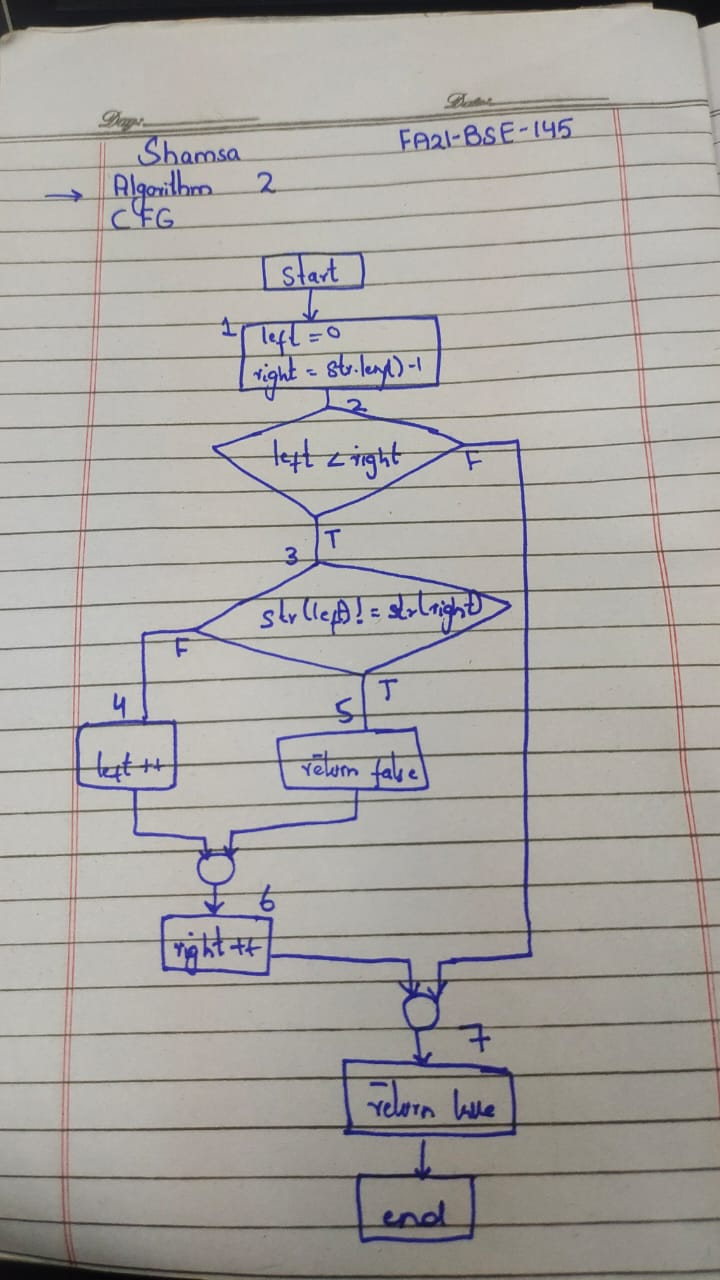 Day:
Date:
Shamsa FA21-BSE-145
→ Algorithm 2
CFG
Start
1
left = 0
right = str.length) -1
2
left < right
F
T
3
str(left) != str(right)
F
T
4
5
left ++
return false
6
right ++
7
return true
end